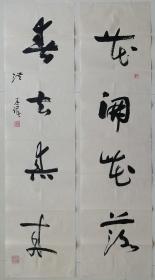 花開花落
春去春來